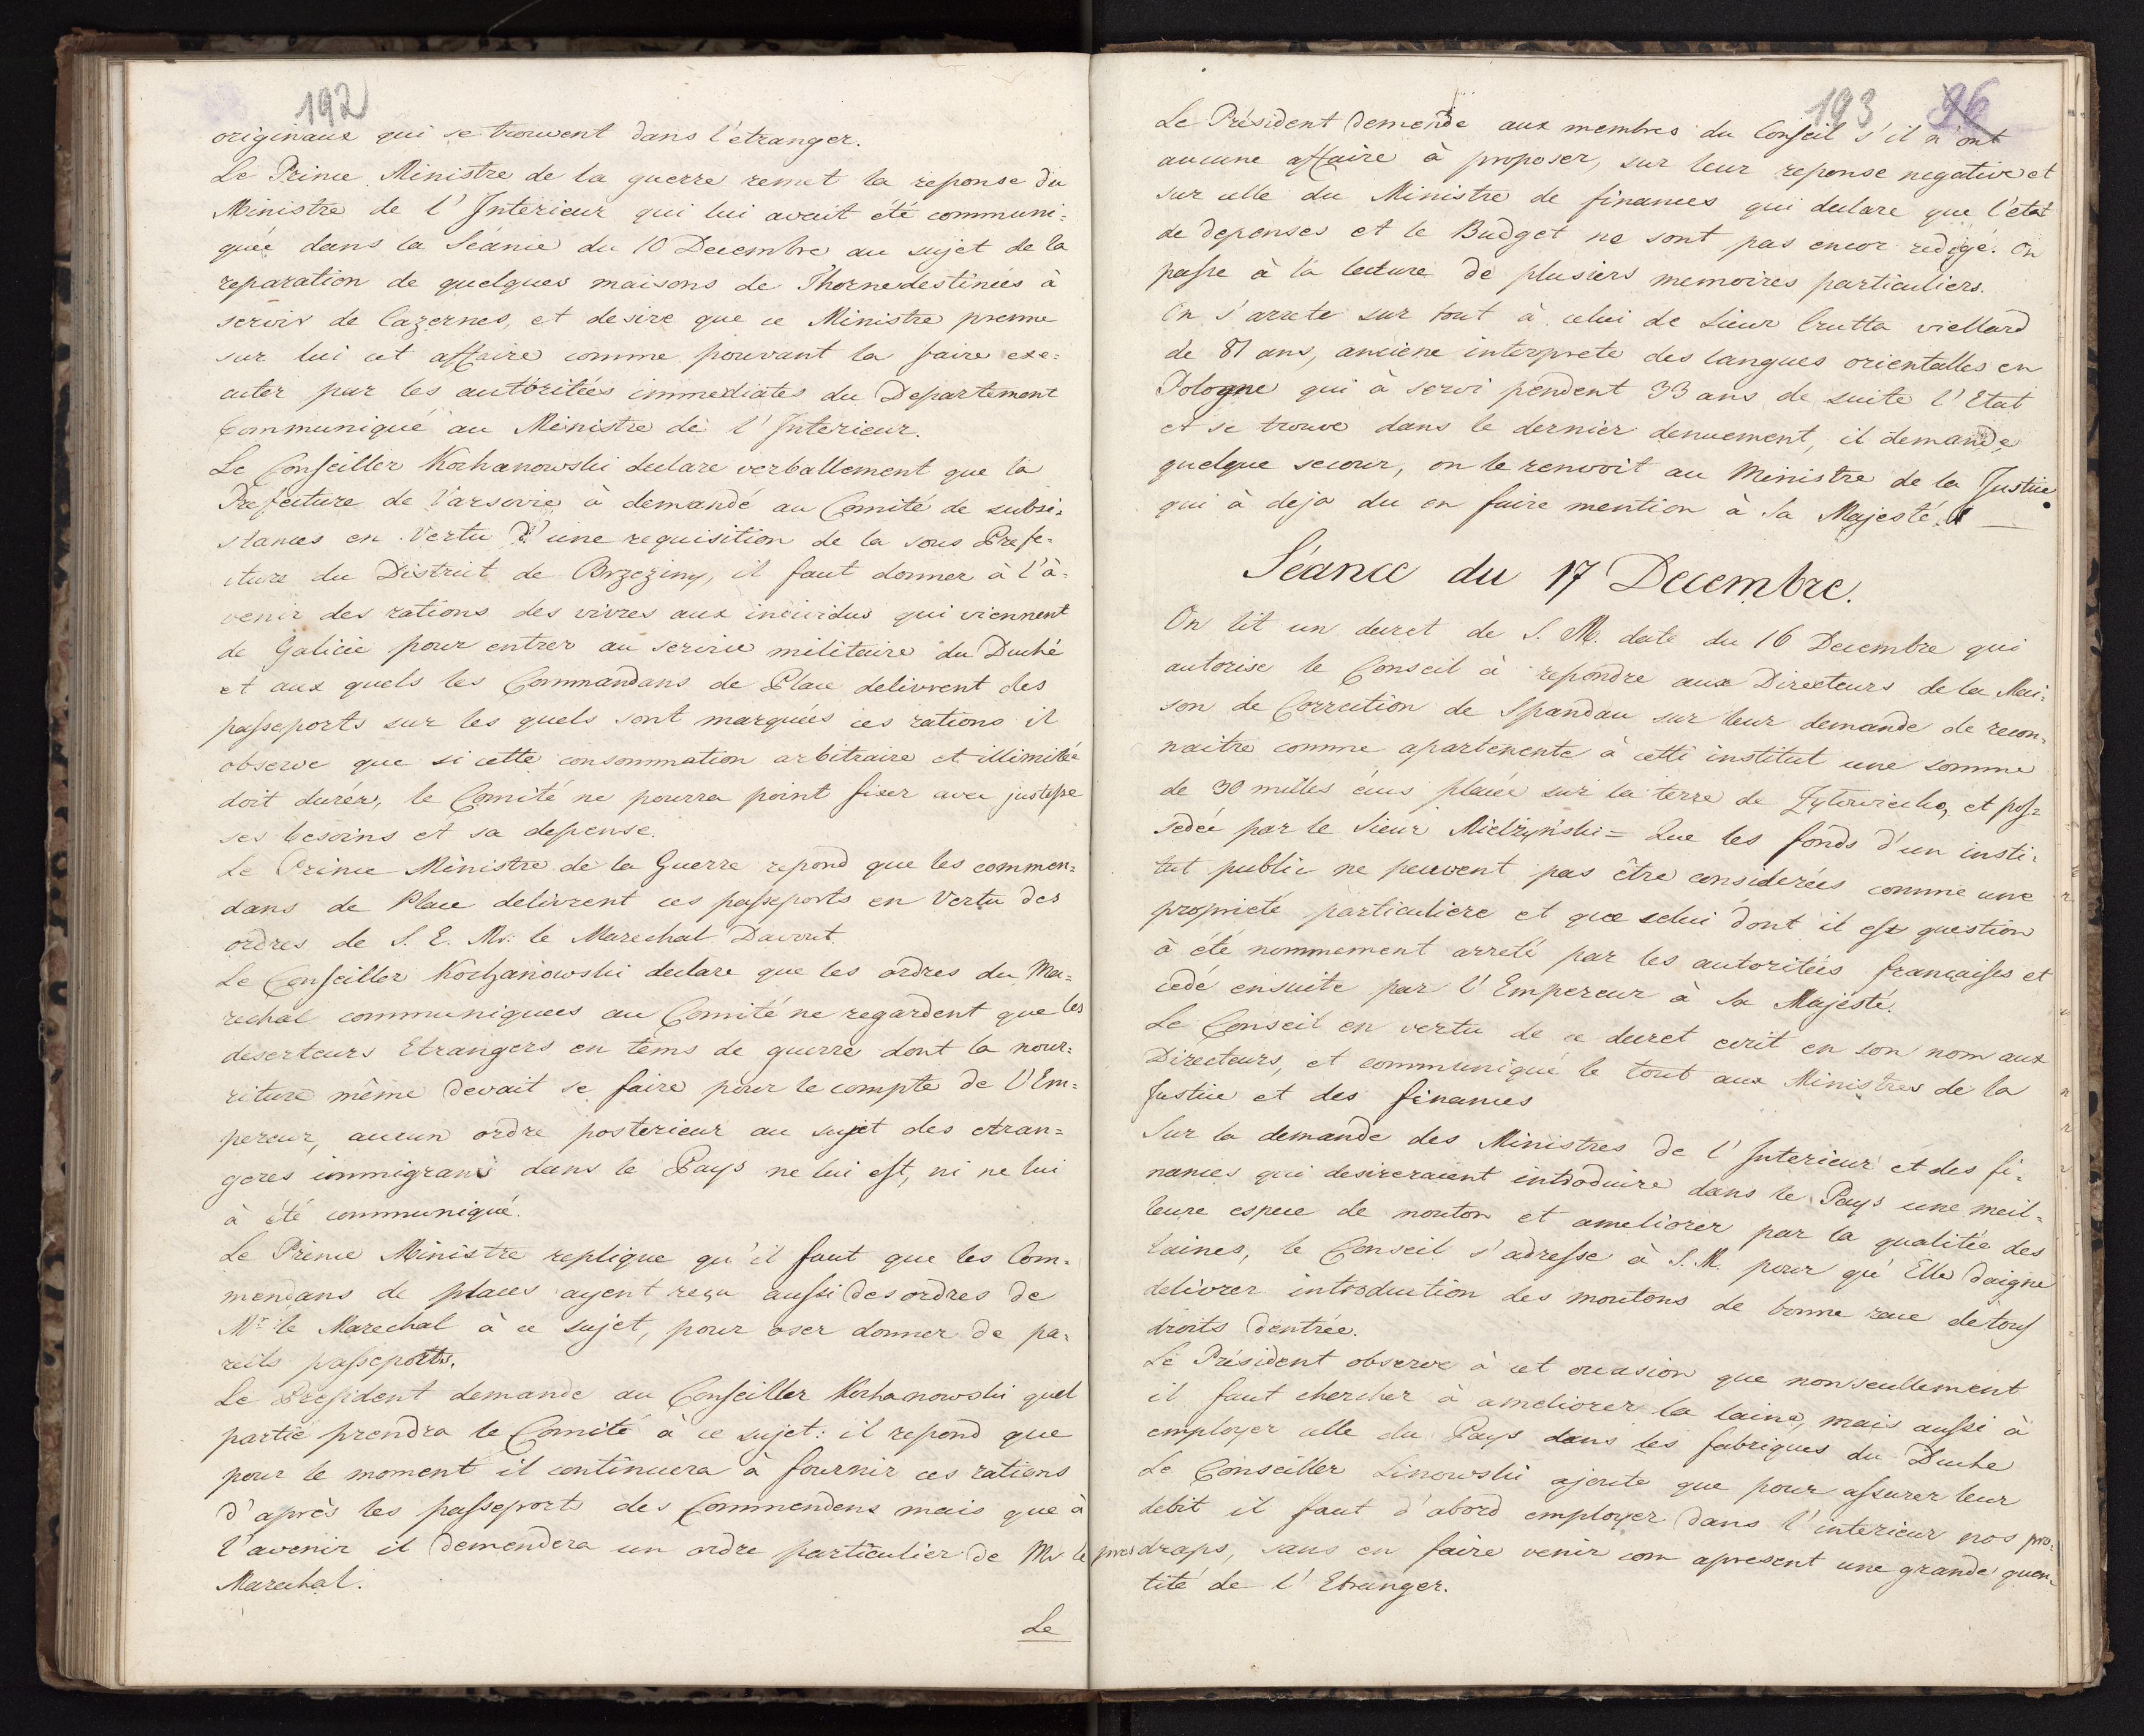 192
originaux qui se trouvent dans l'étranger.
Le Prince Ministre de la guerre remet la reponse du
Ministre de l'Interieur qui lui avait été communi=
quée dans la Séance du 10 Decembre au sujet de la
reparation de quelques maisons de Thorne destinées à
servir de Cazernes, et desire que ce Ministre prenne
sur lui cet affaire comme pouvant la faire exe=
cuter par les autôritées immediates du Departement
Communiqué au Ministre de l'Interieur.
Le Conseiller Kochanowski declare verballement que la
Prefecture de Varsovie à demandé au Comité de subsi=
stances en Vertu d'une requisition de la sous Prefe=
cture du District de Brzeziny, il faut donner à l'à=
venir des rations des vivres aux individus qui viennent
de Galicie pour entrer au service militaire du Duché
et aux quels les Commandans de Place delivrent des
passeports sur les quels sont marquées ces rations il
observe que si cette consommation arbitraire et illimitée
doit durér, le Comité ne pourra point fixer avec justesse
ses besoins et sa depense.
Le Prince Ministre de la Guerre repond que les commen=
dans de Place delivrent ces passeports en Vertu des
ordres de S. E. Mr. le Marechal Davout.
Le Conseiller Kochanowski declare que les ordres du Ma=
rechal communiquees au Comité ne regardent que les
deserteurs Etrangers en tems de guerre dont la nour=
riture même devait se faire pour le compte de l'Em=
pereur, aucun ordre posterieur au sujet des etran=
geres immigrans dans le Pays ne lui est, ni ne lui
à été communiqué.
Le Prince Ministre replique qu'il faut que les Com=
mendans de places ayent reçu aussi des ordres de
Mr le Marechal à ce sujet, pour oser donner de pa=
reils passeports.
Le President demande au Conseiller Kochanowski quel
partie prendra le Comité à ce sujet: il repond que
pour le moment il continuera à fournir ces rations
d'après les passeports des Commendens mais que à
l'avenir il demendera un ordre particulier de Mr le
Marechal.
Le
193 96
Le Président demende aux membres du Conseil s'il n'ont
aucune affaire à proposer, sur leur reponse negative et
sur celle du Ministre de finances qui declare que l'état
de depenses et le Budget ne sont pas encor redigé. On
passe à la lecture de plusiers memoires particuliers.
On s'arrete sur tout à celui de Sieur Crutta viellard
de 81 ans, anciene interprete des langues orientalles en
Pologne qui à servi pendent 33 ans de suite l'Etat
et se trouve dans le dernier denuement, il demande
quelque secour, on le renvoit au Ministre de la Justice
qui à deja du en faire mention à Sa Majesté.
Séance du 17 Decembre.
On lit un decret de S. M. date du 16 Decembre qui
autorise le Conseil à repondre aux Directeurs de la Mai=
son de Correction de Spandau sur leur demande de recon=
naitre comme apartenente à cette institut une somme
de 30 milles écus placée sur la terre de Zytowiecko, et pos=
sedée par le Sieur Mielżyński = Que les fonds d'un insti=
tut public ne peuvent pas être considerées comme une
proprieté particuliere et que celui dont il est question
à été nommement arreté par les autoritées françaises et
cedé ensuite par l'Empereur à Sa Majesté.
Le Conseil en vertu de ce decret ecrit en son nom aux
Directeurs, et communiqué le tout aux Ministres de la
Justice et des finances
Sur la demande des Ministres de l'Interieur et des fi=
nances qui desireraient introduire dans le Pays une meil=
leure espece de mouton et ameliorer par la qualitée des
laines, le Conseil s'adresse à S. M. pour qu'Elle daigne
delivrer introduction des moutons de bonne race de tous
droits d'entrée.
Le Président observe à cet occasion que non seullement
il faut chercher à ameliorer la laine, mais aussi à
employer celle du Pays dans les fabriques du Duche
Le Conseiller Linowski ajoute que pour assurer leur
debit il faut d'abord employer dans l'interieur nos pro=
pres draps, sans en faire venir com apresent une grande quen=
tité de l'Etranger.